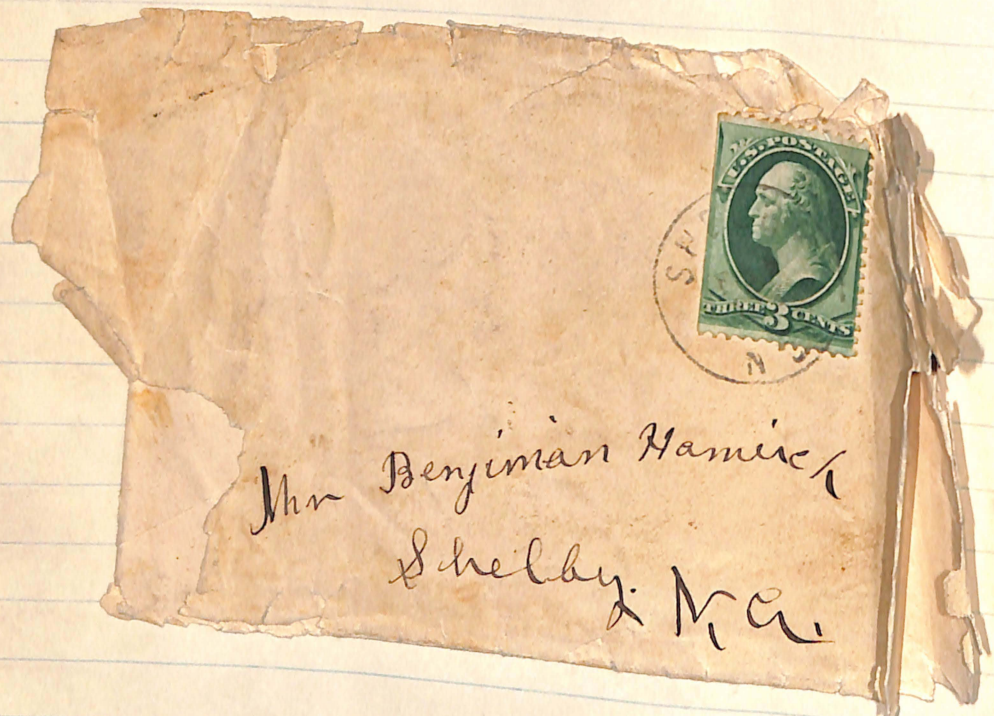 U.S. POSTAGE
THREE 3 CENTS
Mr Benjiman Hamrick
Shelby. N, C.